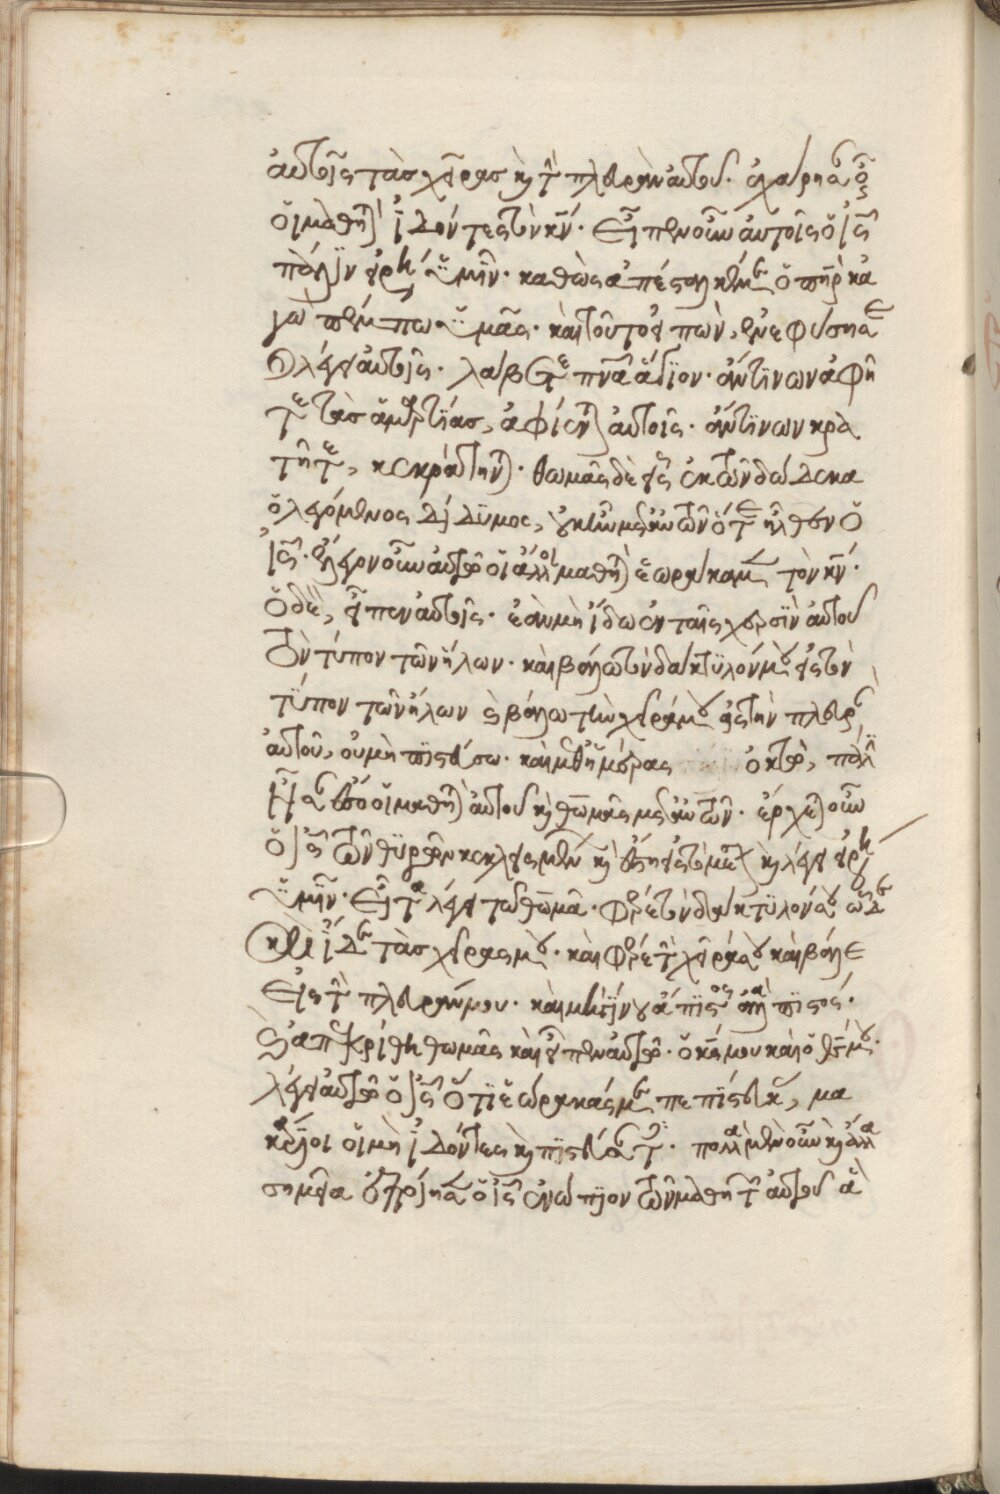 αὐτοῖς τὰς χεῖρας κ(αὶ) τὴν πλευρὰν αὐτοῦ. ἐχάρησαν οὖν
οἱ μαθηταὶ ἰδόντες τὸν κν. εἶπεν οὖν αὐτοῖς ὁ ις
πάλιν εἰρήνη ὑμῖν. καθὼς ἀπέσταλκέ με ὁ πηρ κα
γὼ πέμπω ὑμᾶς. καὶ τοῦτο εἰπὼν, ἐνεφύσησε
κ(αὶ) λέγει αὐτοῖς. λάβετε πνα ἅγιον. ἄν τινων ἀφῆ
τε τὰς ἁμαρτίας, ἀφίενται αὐτοῖς. ἄν τινων κρα
τῆτε, κεκράτηνται. θωμᾶς δὲ εἷς ἐκ τῶν δώδεκα
ὁ λεγόμενος δίδυμος, οὐκ ἦν μετ' αὐτῶν ὅτε ἦλθεν ὁ
ις. ἔλεγον οὖν αὐτῷ οἱ ἄλλοι μαθηταὶ ἑωράκαμεν τὸν κν.
ὁ δὲ, εἶπεν αὐτοῖς. ἐὰν μὴ ἴδω ἐν ταῖς χερσὶν αὐτοῦ
τὸν τύπον τῶν ἥλων. καὶ βάλω τὸν δάκτυλόν μου εἰς τὸν
τύπον τῶν ἥλων κ(αὶ) βάλω τὴν χεῖρά μου εἰς τὴν πλευρὰν
αὐτοῦ, οὐ μὴ πιστεύσω. καὶ μεθ' ἡμέρας ὀκτὼ, πάλιν
ἦσαν ἔσω οἱ μαθηταὶ αὐτοῦ κ(αὶ) θωμᾶς μετ' αὐτῶν. ἔρχεται οὖν
ὁ ις τῶν θυρῶν κεκλεισμένων κ(αὶ) ἔστη εἰς τὸ μέσον κ(αὶ) λέγει εἰρήνη
ὑμῖν. εἶτα λέγει τῷ θωμᾷ. φέρε τὸν δάκτυλόν σου ὧδε
καὶ ἴδε τὰς χεῖράς μου. καὶ φέρε τὴν χεῖρά σου καὶ βάλε
εἰς τὴν πλευράν μου. καὶ μὴ γίνου ἄπιστος ἀλλὰ πιστός.
κ(αὶ) ἀπεκρίθη θωμᾶς καὶ εἶπεν αὐτῷ. ὁ κς μου καὶ ὁ θς μου.
λέγει αὐτῷ ὁ ις ὅτι ἑώρακάς με πεπίστευκας, μα
κάριοι οἱ μὴ ἰδόντες κ(αὶ) πιστεύσαντες. πολλὰ μὲν οὖν κ(αὶ) ἄλλα
σημεῖα ἐποίησεν ὁ ις ἐνώπιον τῶν μαθητῶν αὐτοῦ ἃ